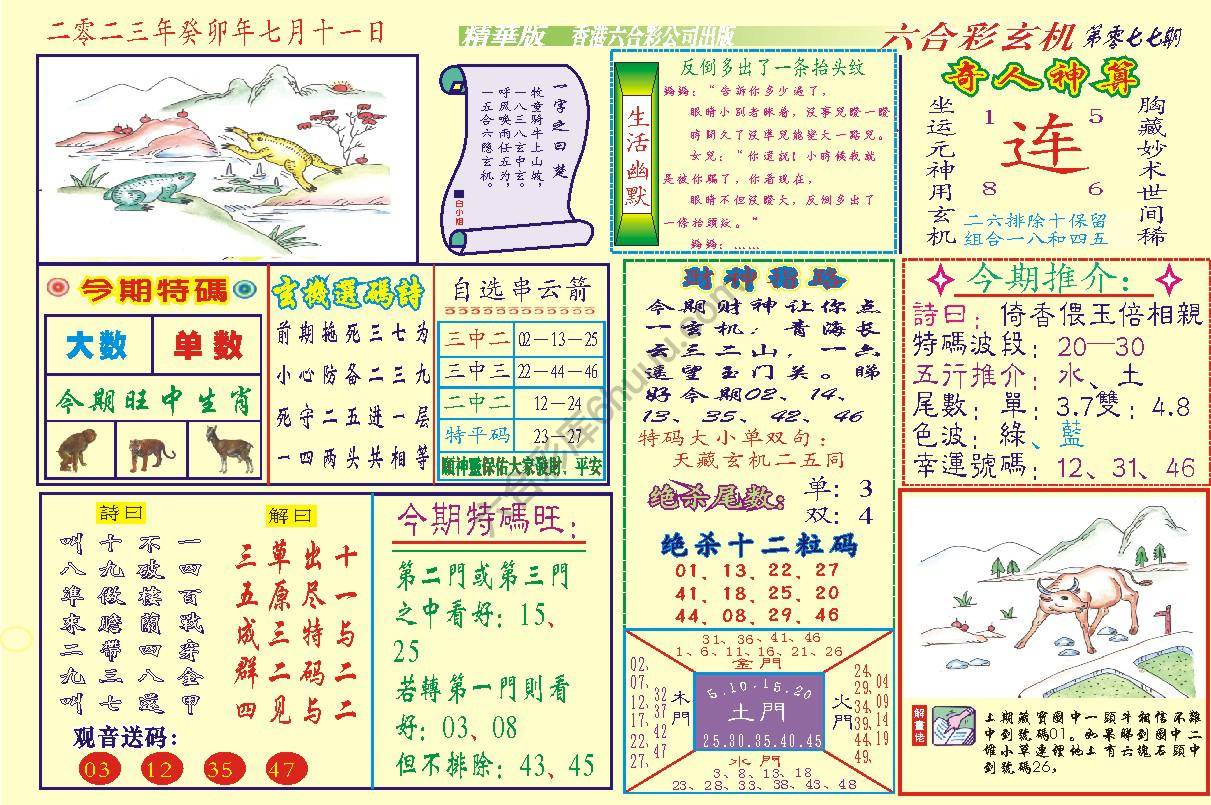 二零二三年癸卯年七月十一日
精華版 香港六合彩公司出版
六合彩玄机 第零七七期
一字之曰楚
牧童騎牛上山坡，
一八三八玄中玄。
呼风唤雨任五为，
一五合六隱玄机。
白小姐
生活幽默
反倒多出了一条抬头纹
媽媽：“告訴你多少遍了，
眼睛小别老眯着，沒事兒瞪一瞪
時間久了沒準兒能變大一路兒。
女兒：“你還說！小時候我就
是被你騙了，你看現在，
眼睛不但沒瞪大，反倒多出了
一條抬頭紋。”
媽媽：……
奇人神算
坐运元神用玄机
1 5
连
8 6
胸藏妙术世间稀
二六排除十保留
组合一八和四五
今期特碼
大数 单数
今期旺中生肖
玄機選碼詩
前期拖死三七为
小心防备二三九
死守二五进一层
一四两头共相等
自选串云箭
三中二 02—13—25
三中三 22—44—46
二中二 12—24
特平码 23—27
願神靈保佑大家發財、平安
财神指路
今期财神让你点
一玄机：青海长
云三二山，一六
遥望玉门关。睇
好今期02、14、
13、35、42、46
特码大小单双句：
天藏玄机二五同
绝杀尾数：
单：3
双：4
绝杀十二粒码
01、13、22、27
41、18、25、20
44、08、29、46
今期推介：
詩曰：倚香偎玉倍相親
特碼波段：20—30
五行推介：水、土
尾數：單：3.7雙：4.8
色波：綠、藍
幸運號碼：12、31、46
詩曰
一四百戰穿金甲
不破樓蘭四八還
十九做膽帶三七
叫八準來二九叫
解曰
十一与二二
出尽特码与
草原三二见
三五成群四
观音送码：
03 12 35 47
今期特碼旺：
第二門或第三門
之中看好：15、
25
若轉第一門則看
好：03、08
但不排除：43、45
31、36、41、46
1、6、11、16、21、26
金門
02、07、12、17、22、27、
32、37、42、47
木門
5.10.15.20
土門
25.30.35.40.45
火門
24、29、34、39、44、49、
04、09、14、19
水門
3、8、13、18
23、28、33、38、43、48
解畫佬
上期藏寶圖中一頭牛相信不難
中到號碼01。如果睇到圖中二
堆小草連埋地上有六塊石頭中
到號碼26，
六合彩库6huuu.com